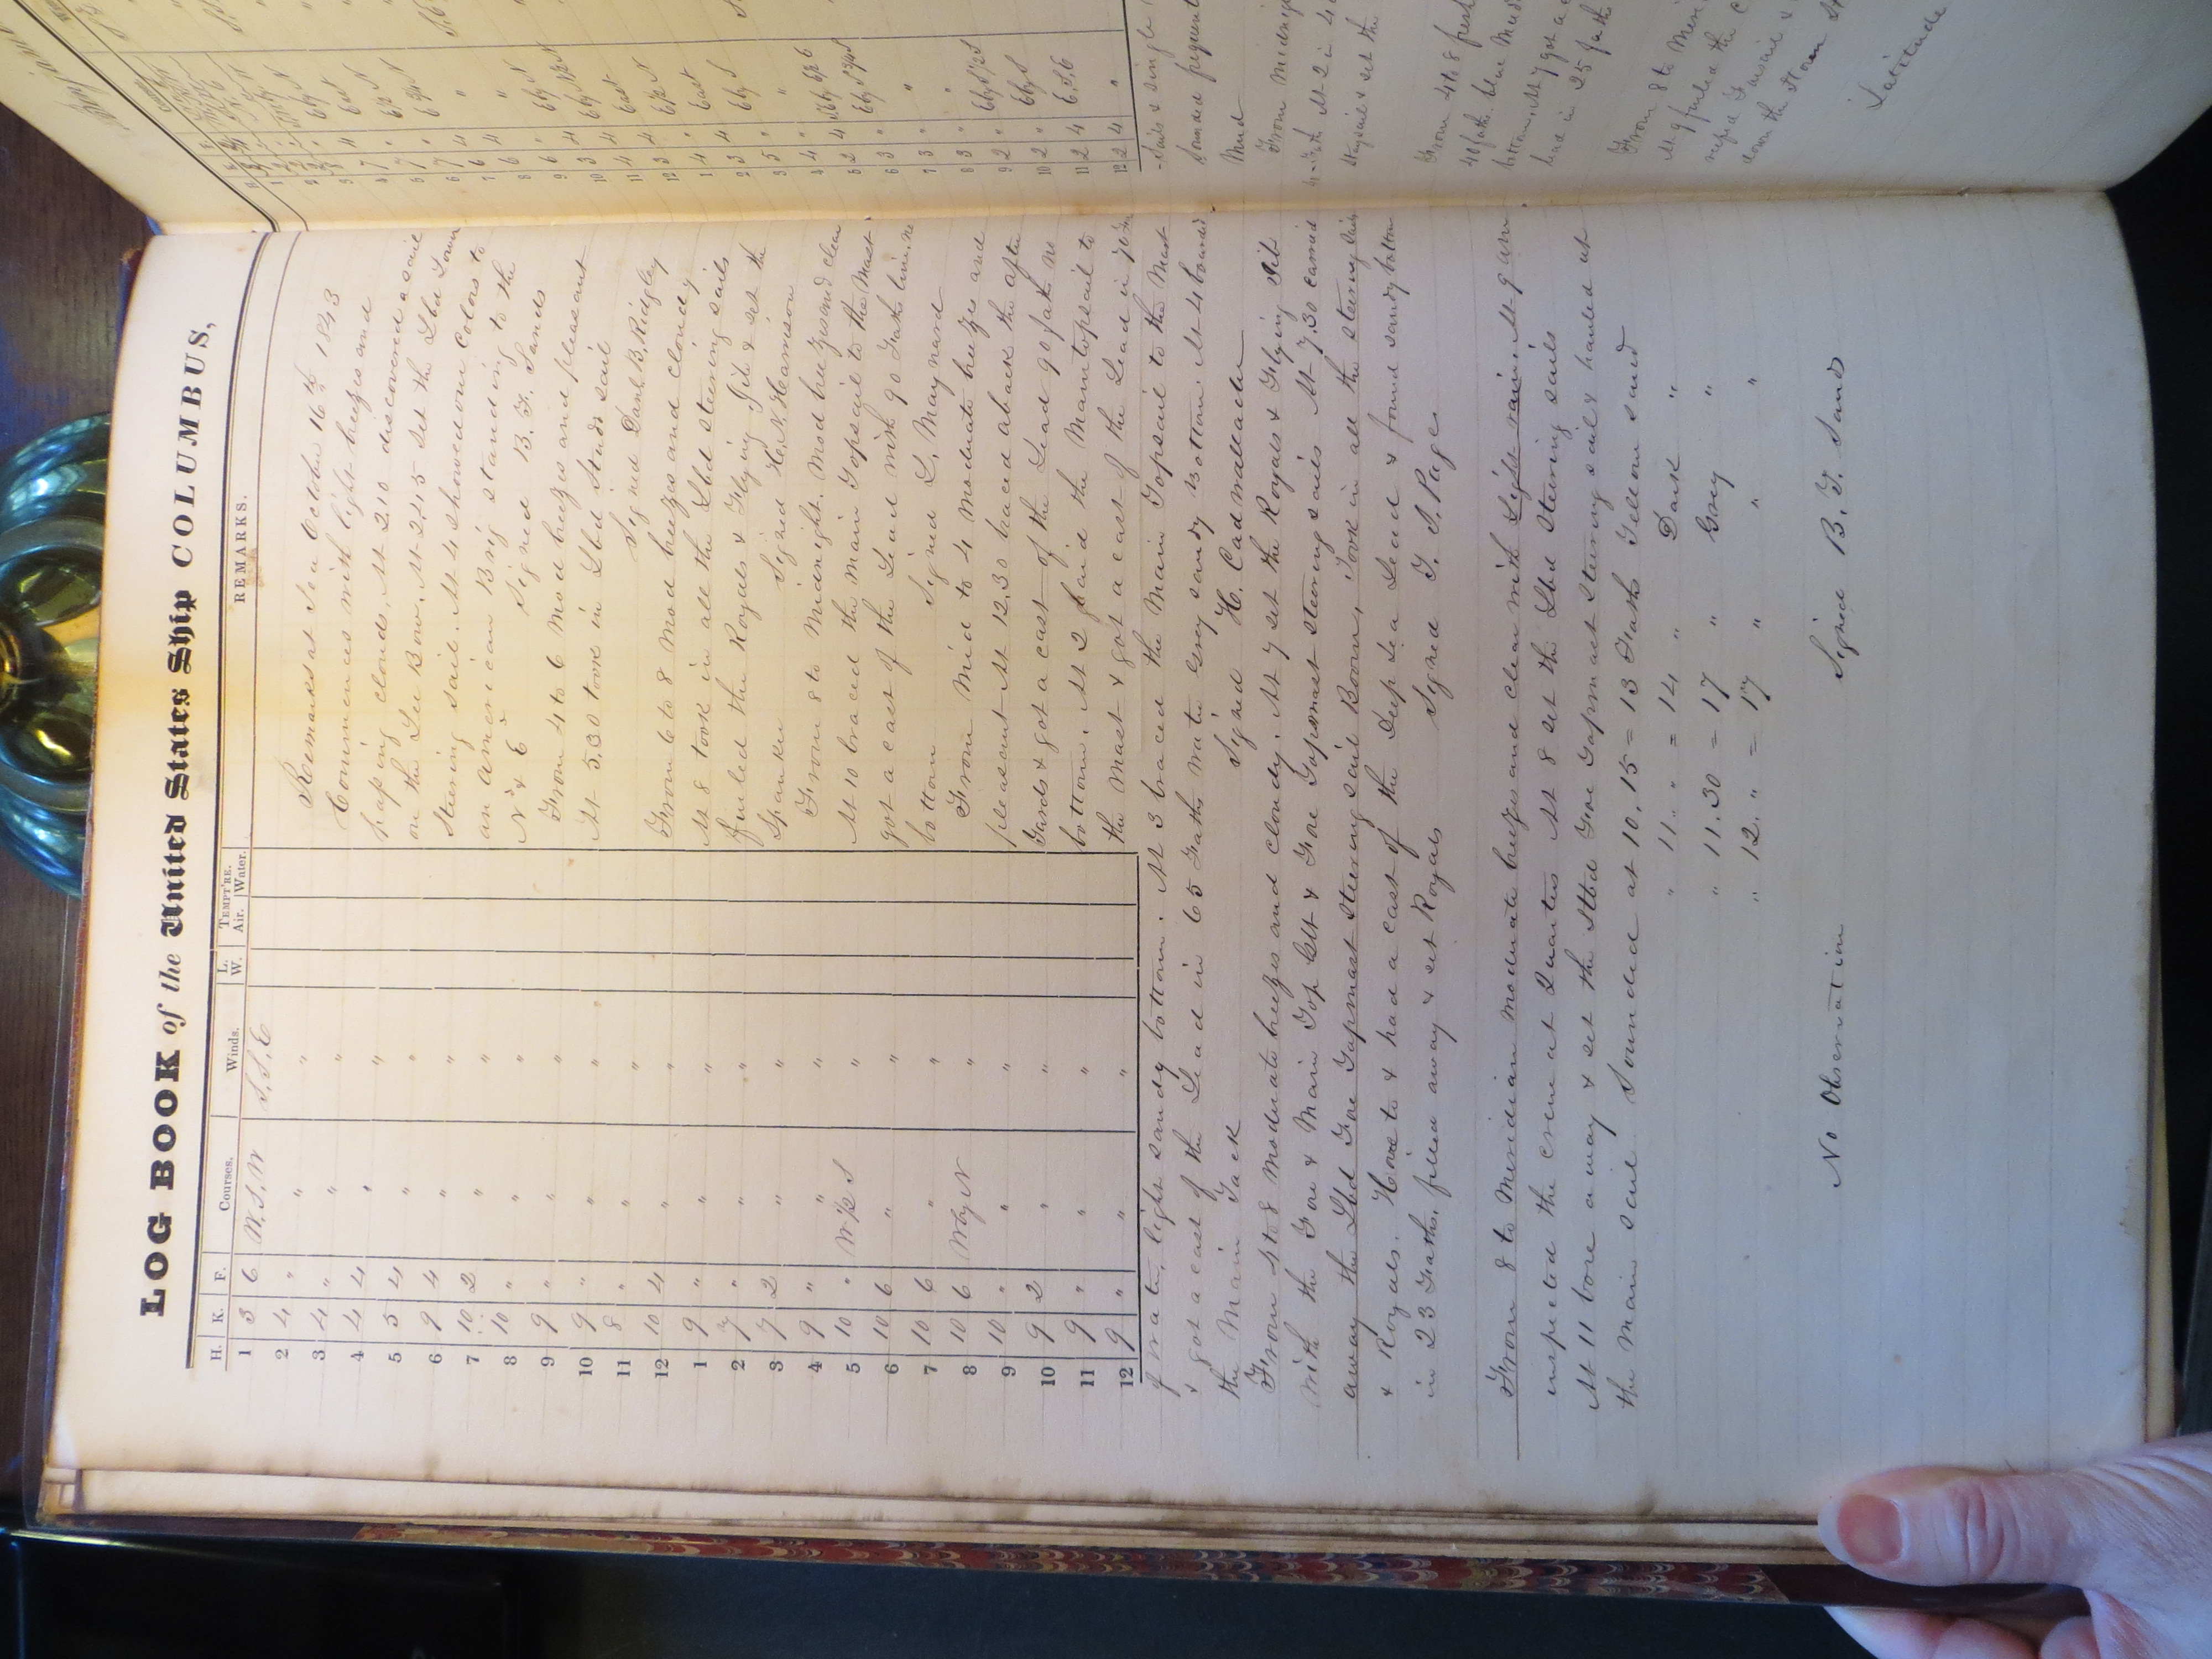 LOG BOOK of the United States Ship COLUMBUS,
H. K. F. Courses. Winds. L. W. TEMPT'RE. Air. Water. REMARKS.
1 3 6 W.S.W S.S.E
2 4 " " "
3 4 " " "
4 4 4 " "
5 5 4 " "
6 9 4 " "
7 10 2 " "
8 10 " " "
9 9 " " "
10 9 " " "
11 8 " " "
12 10 4 " "
1 9 " " "
2 7 " " "
3 7 2 " "
4 9 " " "
5 10 " W 1/2 S "
6 10 6 " "
7 10 6 " "
8 10 6 W by N "
9 10 " " "
10 9 2 " "
11 9 " " "
12 9 " " "
Remarks at Sea October 16th 1843
Commences with light breezes and
passing clouds. At 2.10 discovered a sail
on the Lee Bow. At 2.45 set the Lbd Lower
Steering sail. At 4 showed our Colors to
an American Brig standing to the
Nd & Ed Signed B. F. Sands
From 4 to 6 Mod breezes and pleasant
At 5.30 took in Lbd Studs sail
Signed Danl. B. Ridgley
From 6 to 8 Mod breezes and cloudy
At 8 took in all the Lbd steering sails
furled the Royals & Flying Jib & set the
Spanker Signed H. N. Harrison
From 8 to Midnight. Mod breezes and clear
At 10 braced the Main Topsail to the Mast
got a cast of the Lead with 90 Faths line. no
bottom Signed L. Maynard
From Mid to 4 Moderate breezes and
pleasant At 12.30 braced aback the after
Yards & got a cast of the Lead 90 faths no
bottom. At 2 laid the Maintopsail to
the Mast & got a cast of the Lead in 70 Fms
of water, light sandy bottom. At 3 braced the Main Topsail to the Mast
& got a cast of the Lead in 65 Faths water Grey sandy bottom. At 4 boarded
the Main Tack Signed H. Cadwallader
From 4 to 8 Moderate breezes and cloudy. At 7 set the Royals & Flying Jib
with the Fore & Main Top Glt & Fore Topmast steering sails At 7.30 carried
away the Lbd Fore Topmast steering sail Boom, Took in all the steering sails
& Royals. Hove to & had a cast of the Deep Sea Lead & found sandy bottom
in 23 Faths, filled away & set Royals Signed T. S. Page
From 8 to Meridian Moderate breezes and clear with light rain. At 9 am
inspected the crew at Quarters At 8 set the Lbd Steering sails
At 11 bore away & set the Stbd Fore Topmast steering sail & hauled up
the main sail. Sounded at 10.15 = 13 Faths Yellow sand
" 11 " = 14 " Dark "
" 11.30 = 17 " Grey "
" 12 " = 17 " " "
No Observation Signed B. F. Sands
1
2
3 4 East
4 7
5 7
6 7 4 "
7 6 4 "
8 6
9 6
10 3 4
11 4 4 East
12 3 4 E 1/2 N
1 4 " East
2 3 4 E by S
3 5 " "
4 4 "
5 2 4
6 3 " "
7 3 " "
8 3 "
9 2 " E by S
10 2 " E.S.E
11 2 4
12 2 4 "
-sails & single
sounded frequent
Mud
From Midnight
At 2 in 4
staysail & set the
From 4 to 8 fresh
40 faths blue Mud
bottom, At 7 got a
lead in 25 faths
From 8 to Meri
At 9 furled the
reefed Foresail &
down the Storm
Latitude